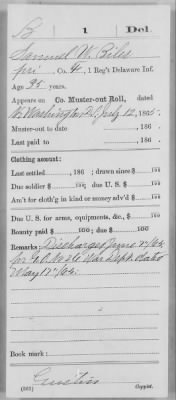 B 1 Del.
Samuel W. Biles
pri, Co. F, 1 Reg't Delaware Inf.
Age 35 years.
Appears on Co. Muster-out Roll, dated
Washington D.C. July 12, 1865.
Muster-out to date , 186 .
Last paid to , 186 .
Clothing account:
Last settled , 186 ; drawn since $ 100
Due soldier $ 100; due U. S. $ 100
Am't for cloth'g in kind or money adv'd $ 100
Due U. S. for arms, equipments, &c., $ 100
Bounty paid $ 100; due $ 100
Remarks: Discharged June
War Dept. dated
May 17/65.
Book mark:
(361) Copyist.